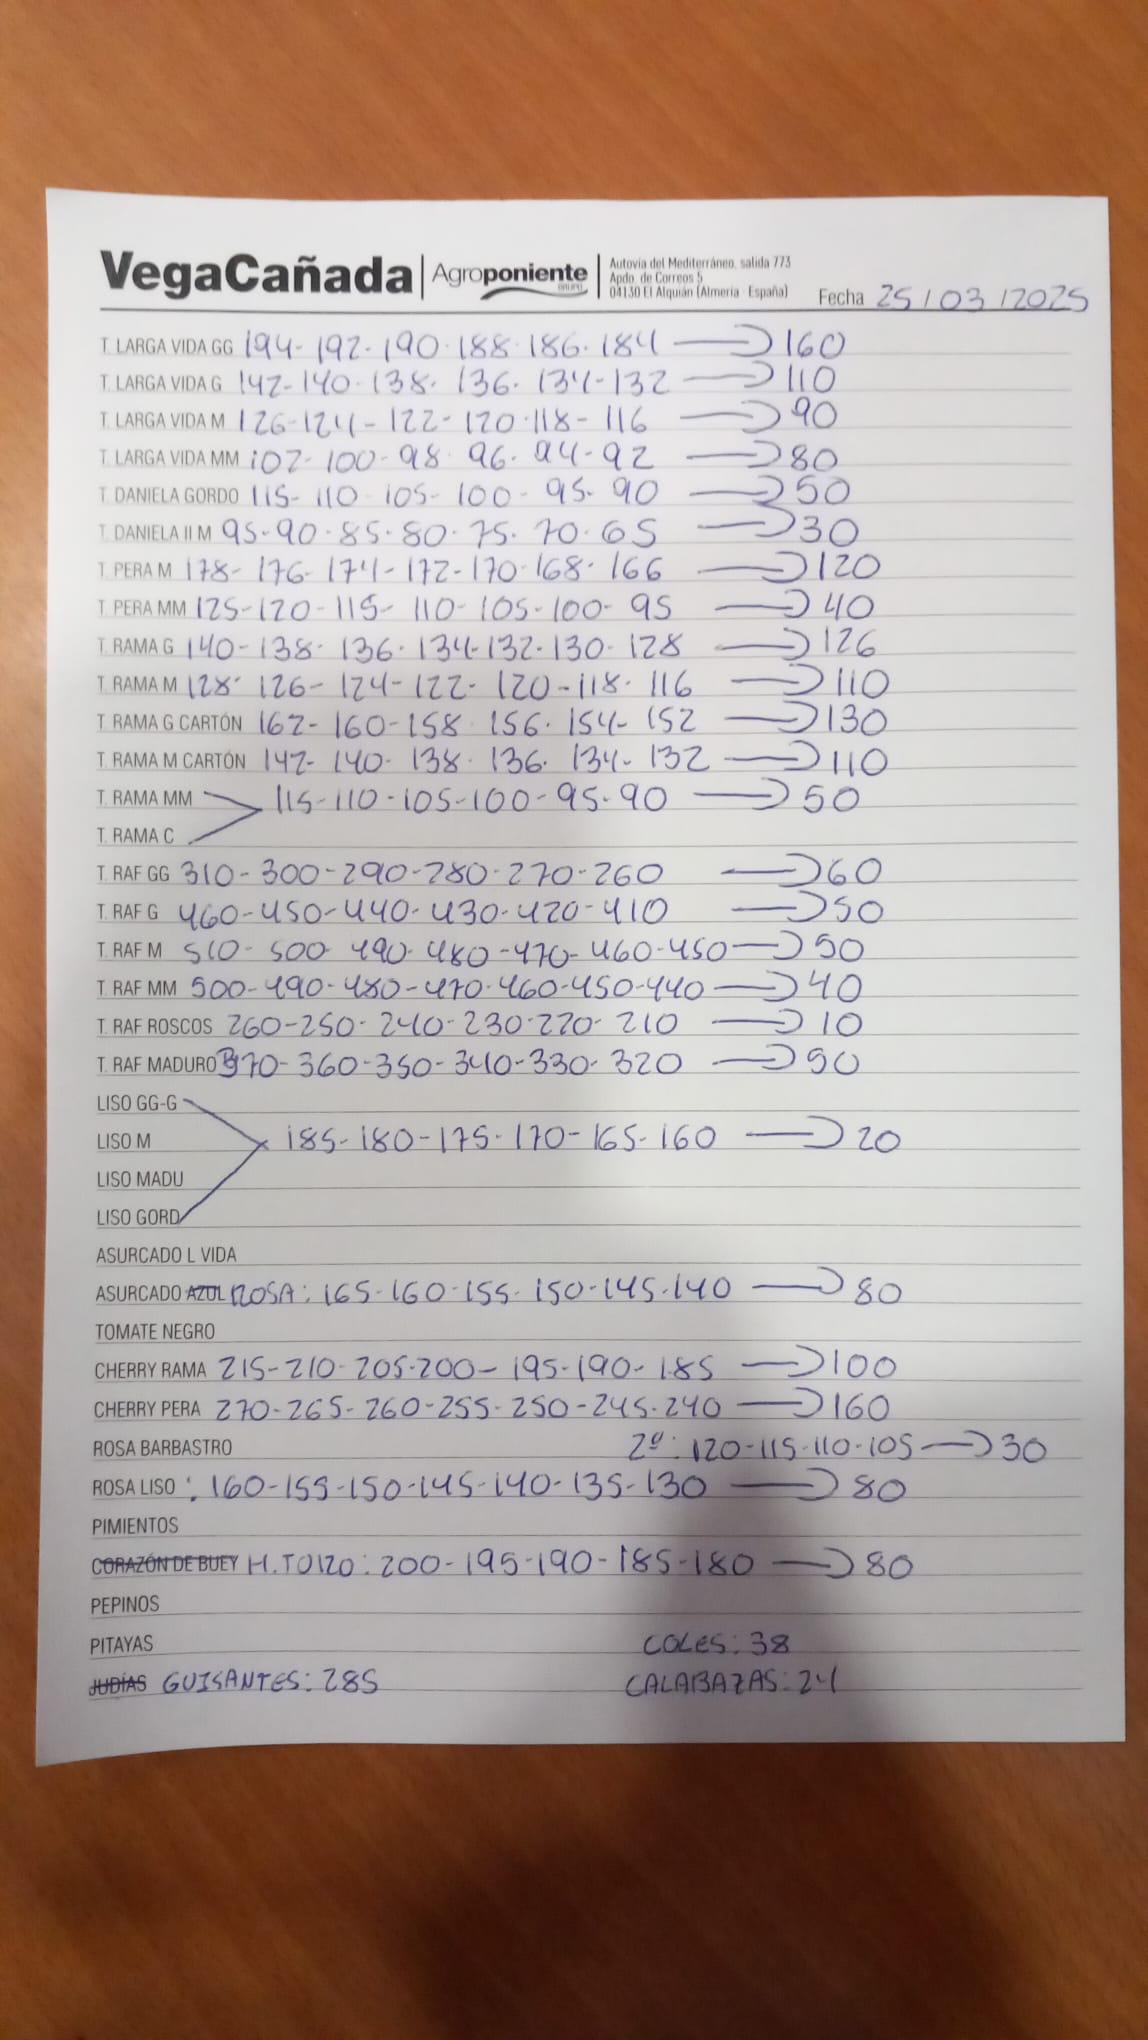 VegaCañada Agroponiente GRUPO
Autovía del Mediterráneo, salida 773
Apdo. de Correos 5
04130 El Alquián (Almería España)
Fecha 25/03/2025
T. LARGA VIDA GG 194-192-190-188-186-184 → 160
T. LARGA VIDA G 142-140-138-136-134-132 → 110
T. LARGA VIDA M 126-124-122-120-118-116 → 90
T. LARGA VIDA MM 102-100-98-96-94-92 → 80
T. DANIELA GORDO 115-110-105-100-95-90 → 50
T. DANIELA II M 95-90-85-80-75-70-65 → 30
T. PERA M 178-176-174-172-170-168-166 → 120
T. PERA MM 125-120-115-110-105-100-95 → 40
T. RAMA G 140-138-136-134-132-130-128 → 126
T. RAMA M 128-126-124-122-120-118-116 → 110
T. RAMA G CARTÓN 162-160-158-156-154-152 → 130
T. RAMA M CARTÓN 142-140-138-136-134-132 → 110
T. RAMA MM 115-110-105-100-95-90 → 50
T. RAMA C
T. RAF GG 310-300-290-280-270-260 → 60
T. RAF G 460-450-440-430-420-410 → 50
T. RAF M 510-500-490-480-470-460-450 → 50
T. RAF MM 500-490-480-470-460-450-440 → 40
T. RAF ROSCOS 260-250-240-230-220-210 → 10
T. RAF MADURO 370-360-350-340-330-320 → 50
LISO GG-G
LISO M 185-180-175-170-165-160 → 20
LISO MADU
LISO GORD
ASURCADO L VIDA
ASURCADO AZUL ROSA: 165-160-155-150-145-140 → 80
TOMATE NEGRO
CHERRY RAMA 215-210-205-200-195-190-185 → 100
CHERRY PERA 270-265-260-255-250-245-240 → 160
ROSA BARBASTRO 2ª: 120-115-110-105 → 30
ROSA LISO : 160-155-150-145-140-135-130 → 80
PIMIENTOS
CORAZÓN DE BUEY H. TORO: 200-195-190-185-180 → 80
PEPINOS
PITAYAS COLES: 38
JUDÍAS GUISANTES: 285 CALABAZAS: 24